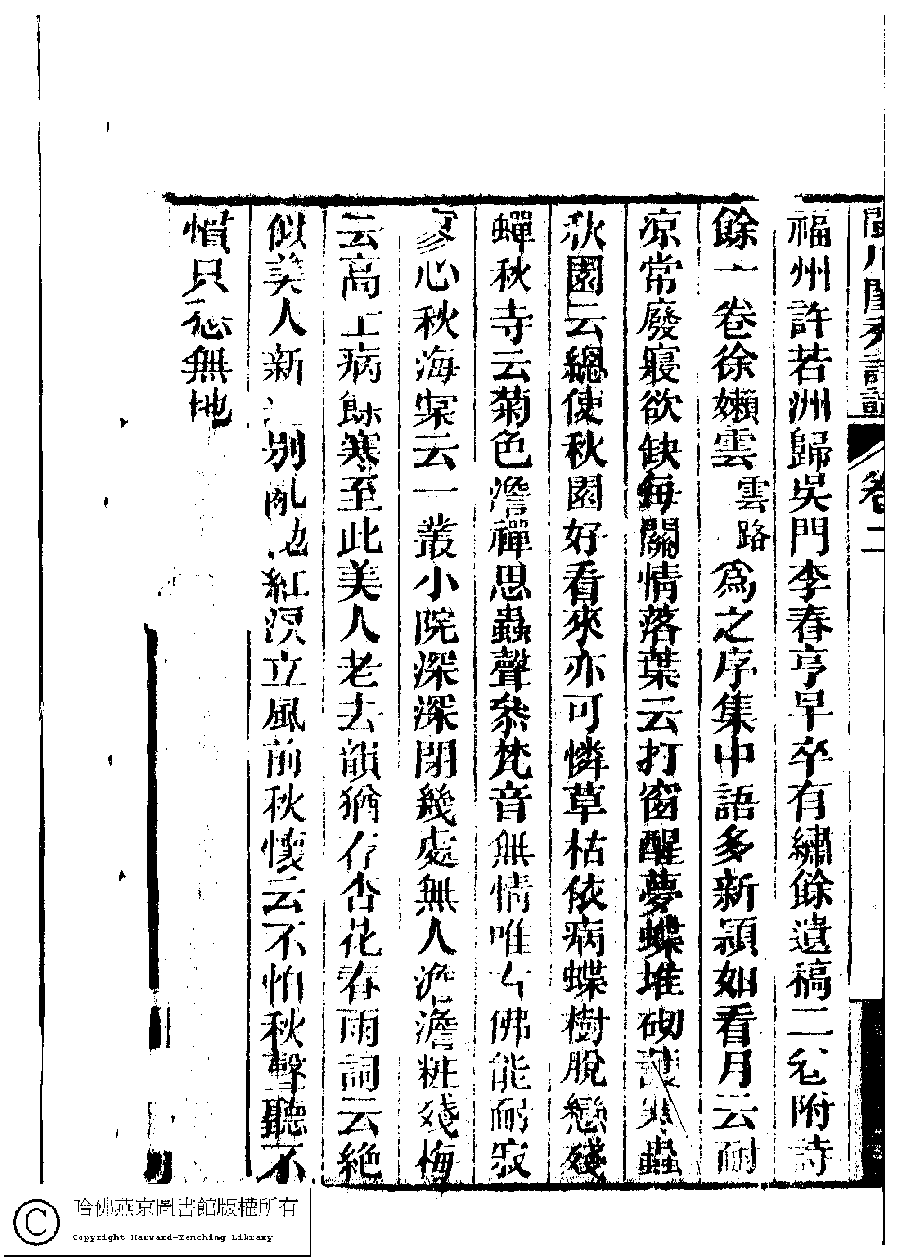 閨秀詩話 卷二
福州許若洲歸吳門李春亭早卒有繡餘遺稿二卷附詩
餘一卷徐嬾雲雲路為之序集中語多新穎如看月云耐
凉常廢寢欲缺每關情落葉云打窗醒夢蝶堆砌護寒蟲
秋園云總使秋園好看來亦可憐草枯依病蝶樹脫戀殘
蟬秋寺云菊色澹禪思蟲聲叅梵音無情唯古佛能耐寂
寥心秋海棠云一叢小院深深閉幾處無人澹澹粧殘梅
云高士病餘寒至此美人老去韻猶存杏花春雨詞云絶
似美人新別亂紅淚立風前秋懷云不怕秋聲聽不
慣只愁無地
哈佛燕京圖書館版權所有
Copyright Harvard-Yenching Library